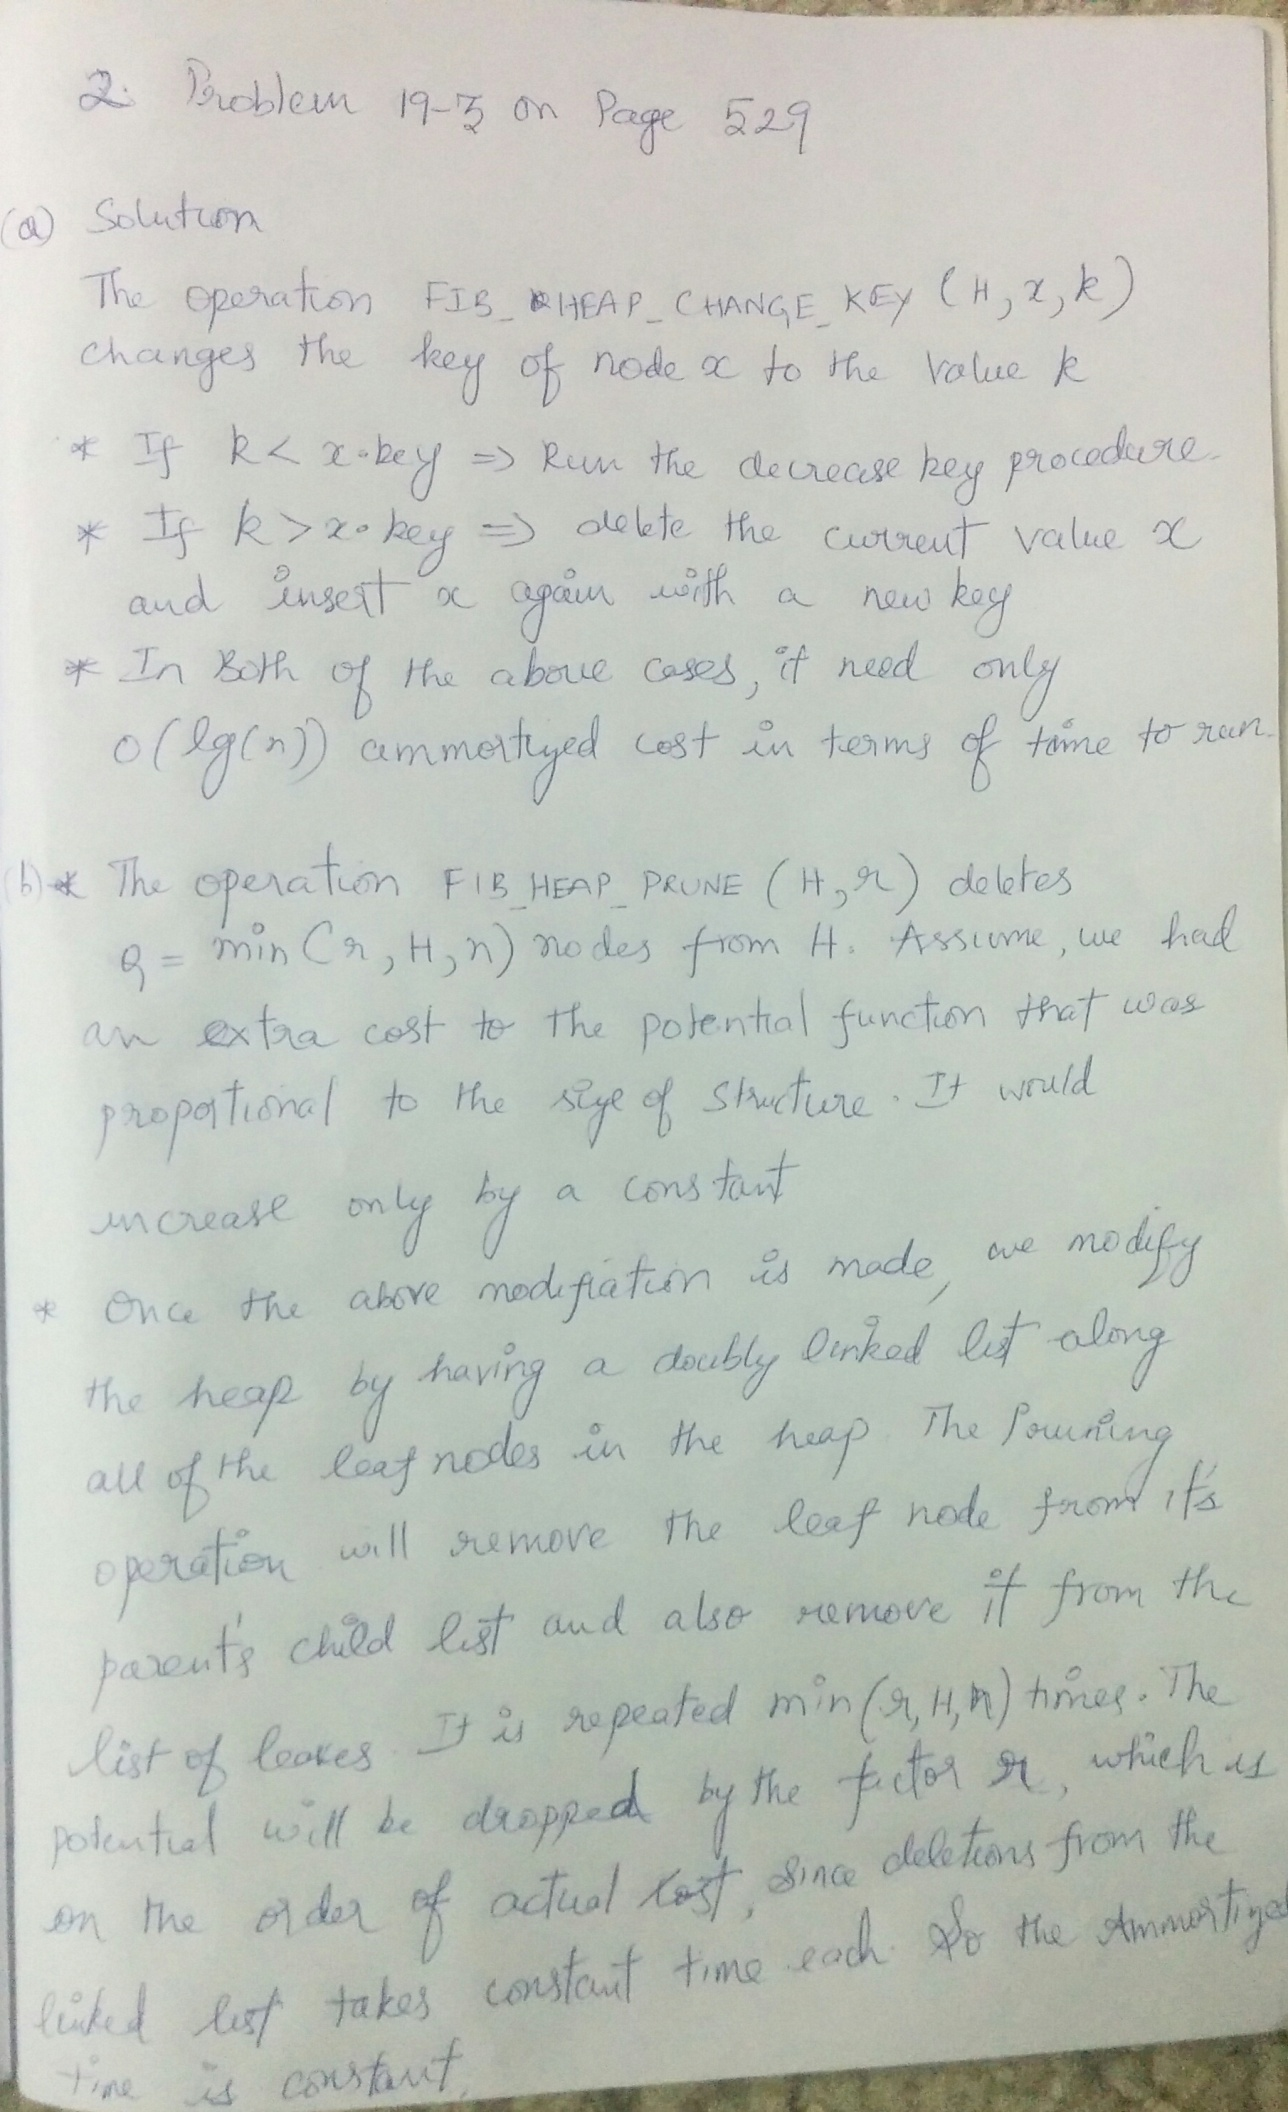 2. Problem 19-3 on Page 529
(a) Solution
The operation FIB_HEAP_CHANGE_KEY (H, x, k)
changes the key of node x to the value k
* If k < x.key => Run the decrease key procedure.
* If k > x.key => delete the current value x
and insert x again with a new key
* In Both of the above cases, it need only
O(lg(n)) ammortized cost in terms of time to run.
(b) * The operation FIB_HEAP_PRUNE (H, r) deletes
q = min (r, H, n) nodes from H. Assume, we had
an extra cost to the potential function that was
proportional to the size of structure. It would
increase only by a constant
* Once the above modifiation is made, we modify
the heap by having a doubly linked list along
all of the leaf nodes in the heap. The
operation will remove the leaf node from it's
parent's child list and also remove it from the
list of leaves. It is repeated min (r, H, n) times. The
potential will be dropped by the factor r, which is
on the order of actual cost, since deletions from the
linked list takes constant time each. So the Ammortized
time is constant.